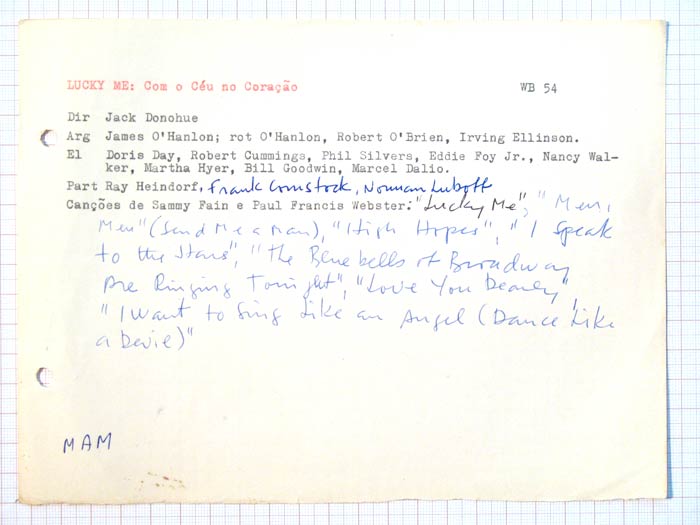 LUCKY ME: Com o Céu no Coração WB 54
Dir Jack Donohue
Arg James O'Hanlon; rot O'Hanlon, Robert O'Brien, Irving Ellinson.
El Doris Day, Robert Cummings, Phil Silvers, Eddie Foy Jr., Nancy Wal-
ker, Martha Hyer, Bill Goodwin, Marcel Dalio.
Part Ray Heindorf, Frank Comstock, Norman Luboff
Canções de Sammy Fain e Paul Francis Webster: "Lucky Me", "Men,
Men" (Send Me a Man), "High Hopes", "I Speak
to the Stars", "The Bluebells of Broadway
Are Ringing Tonight", "Love You Dearly",
"I Want to Sing Like an Angel (Dance Like
a Devil)"
MAM